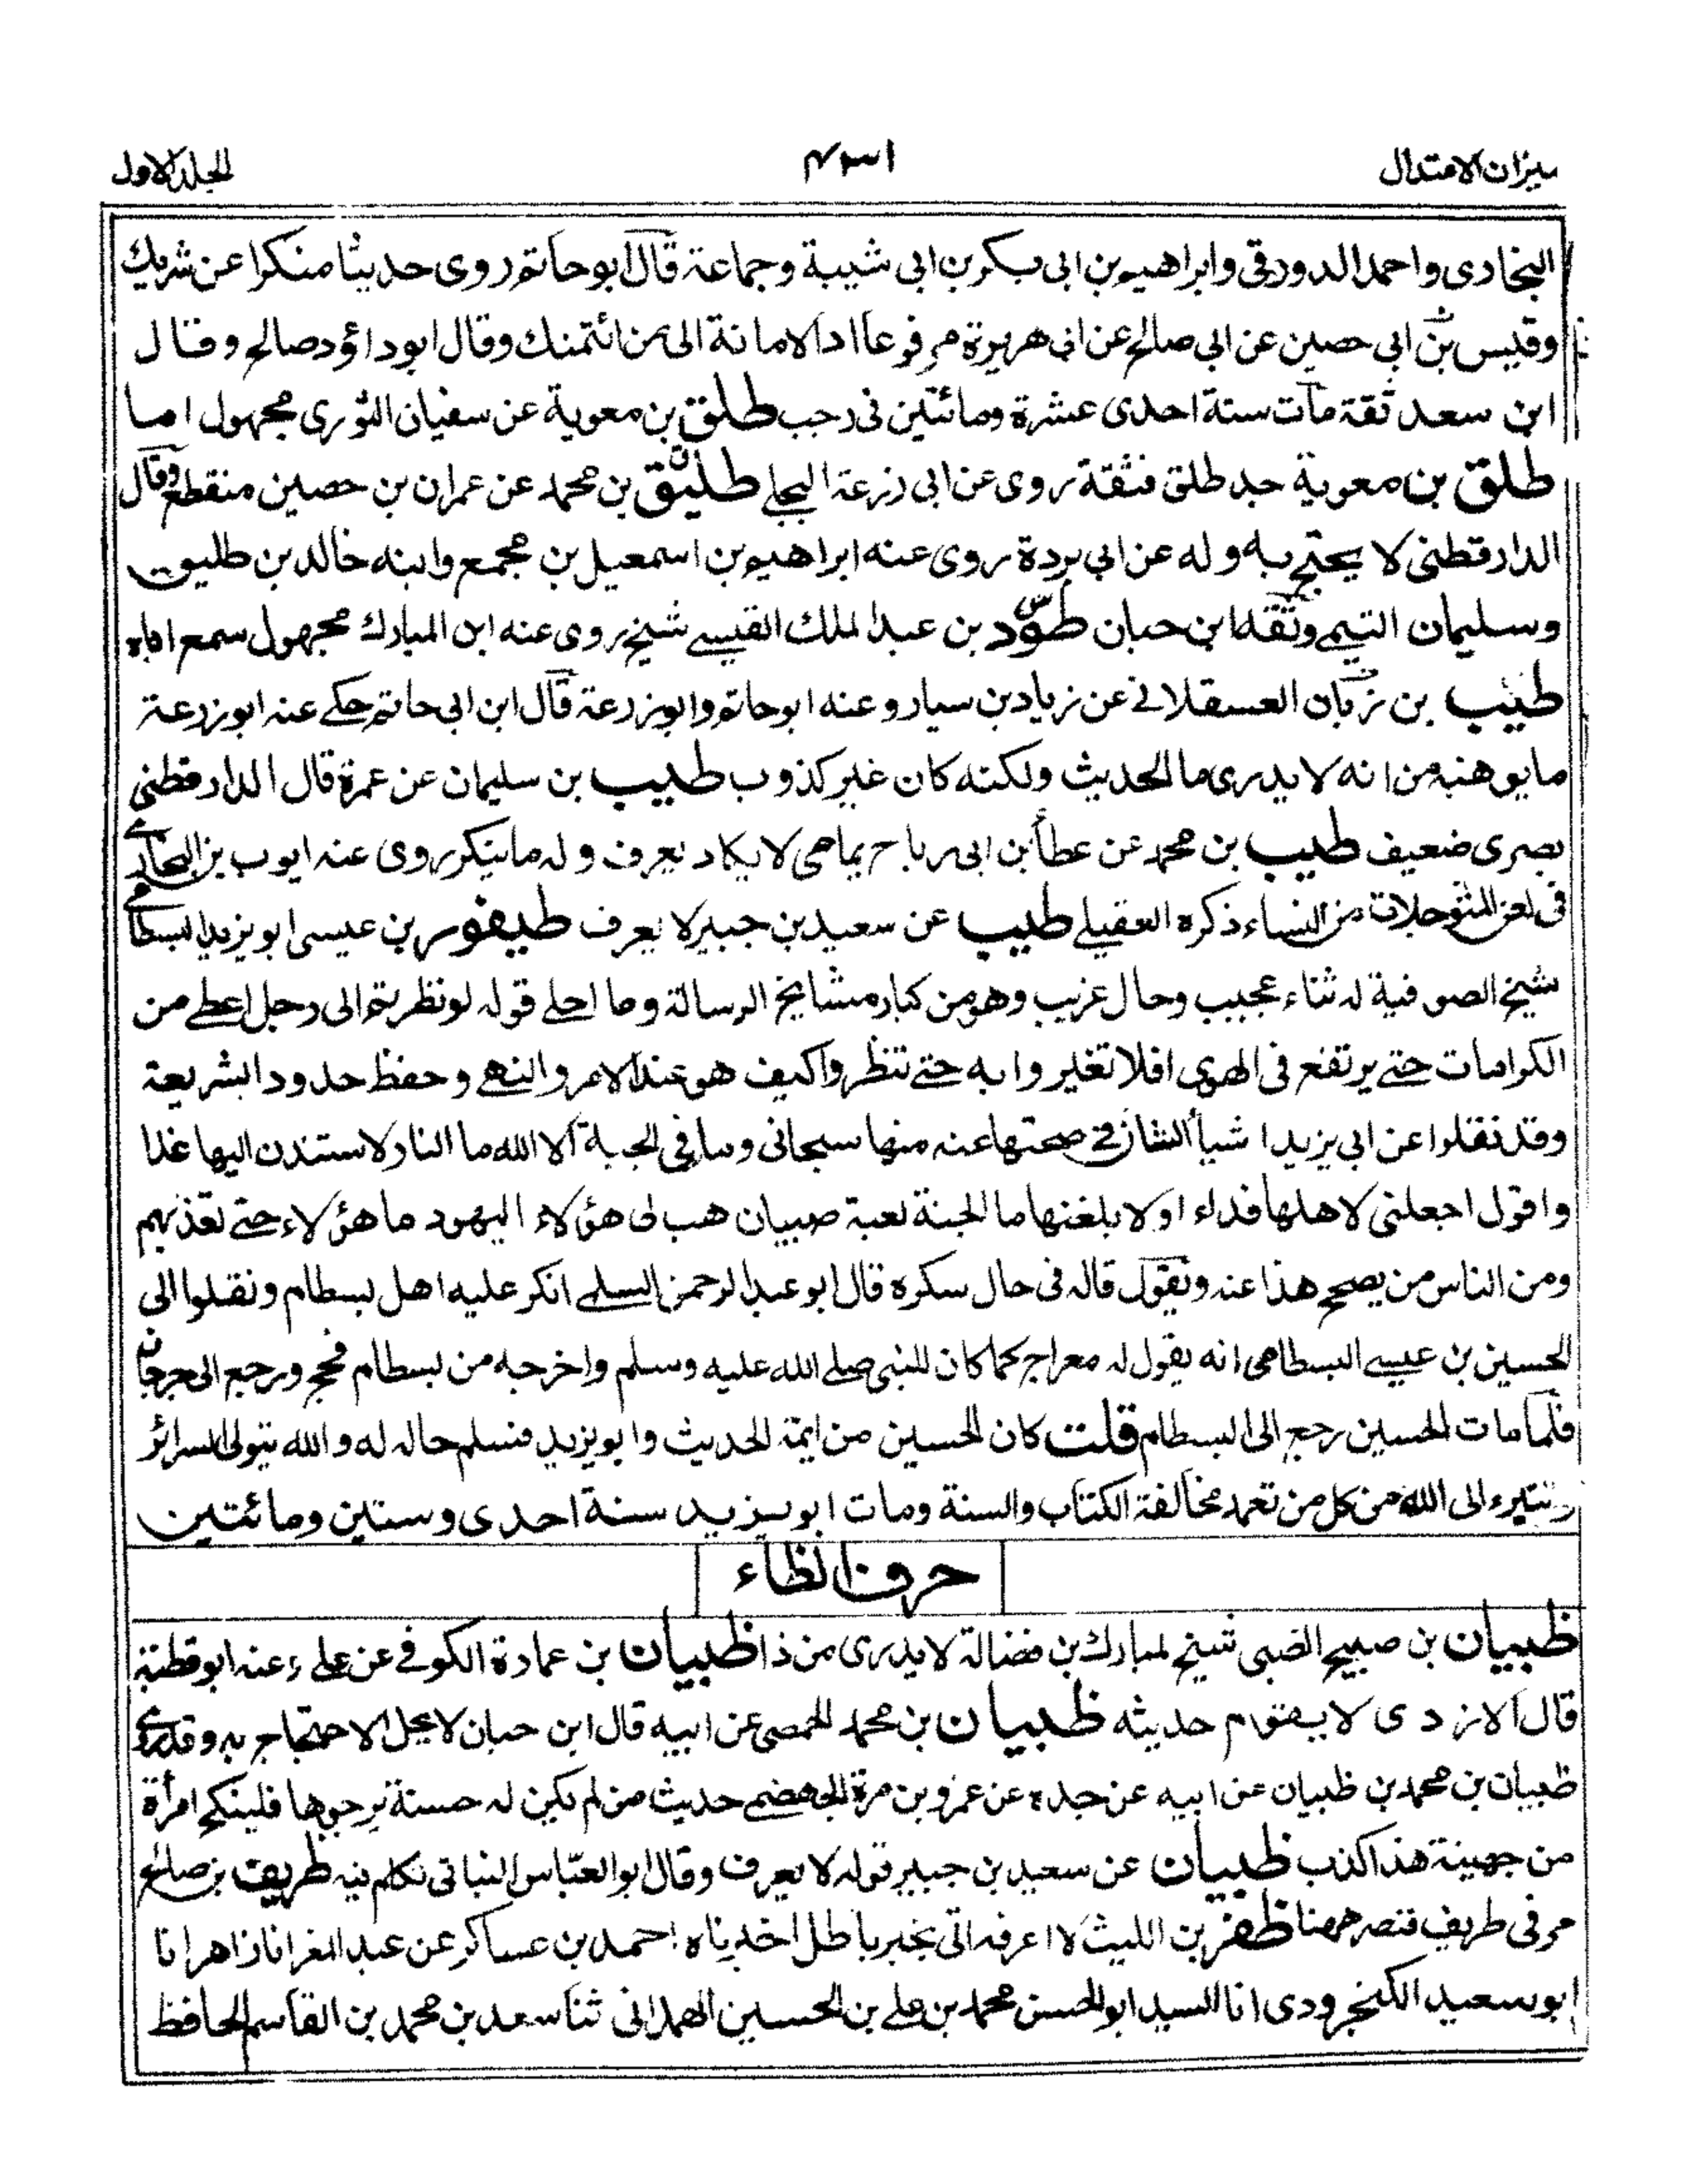 ميزان الاعتدال
٤٣١
المجلد الاول
البخاري واحمد الدورقي وابراهيم بن ابي بكر بن ابي شيبة وجماعة قال ابو حاتم روى حديثا منكرا عن شريك
وقيس بن ابي حصين عن ابي صالح عن ابي هريرة مرفوعا اد الامانة الى من ائتمنك وقال ابو داؤد صالح وقال
ابن سعد ثقة مات سنة احدى عشرة ومائتين في رجب طلق بن معوية عن سفيان الثوري مجهول اما
طلق بن معوية جد طلق فثقة روى عن ابي زرعة البجلي طليق بن محمد عن عمران بن حصين منقطع وقال
الدارقطني لا يحتج به وله عن ابي بردة روى عنه ابراهيم بن اسمعيل بن مجمع وابنه خالد بن طليق
وسليمان التيمي وثقه ابن حبان طود بن عبد الملك القيسي شيخ روى عنه ابن المبارك مجهول سمع اباه
طيب بن زبان العسقلاني عن زياد بن سيار وعنه ابو حاتم وابو زرعة قال ابن ابي حاتم حكى عنه ابو زرعة
ما يوهنه من انه لا يدري ما الحديث ولكنه كان غير كذوب طيب بن سليمان عن عمرة قال الدارقطني
بصري ضعيف طيب بن محمد عن عطأ بن ابي رباح يمامي لا يكاد يعرف وله ما ينكر روى عنه ايوب بن النجار
في لعن المترجلات من النساء ذكره العقيلي طيب عن سعيد بن جبير لا يعرف طيفور بن عيسى ابو يزيد البسطامي
شيخ الصوفية له ثناء عجيب وحال غريب وهو من كبار مشايخ الرسالة وما احلى قوله لو نظرتم الى رجل اعطى من
الكرامات حتى يرتفع في الهوى افلا تغتروا به حتى تنظروا كيف هو عند الامر والنهي وحفظ حدود الشريعة
وقد نقلوا عن ابي يزيد اشيأ الشان في صحتها عنه منها سبحاني وما في الجبة الا الله ما النار لاستندن اليها غدا
واقول اجعلني لاهلها فداء او لابلغنها ما الجنة لعبة صبيان هب لي هؤلاء اليهود ما هؤلاء حتى تعذبهم
ومن الناس من يصحح هذا عنه ويقول قاله في حال سكره قال ابو عبد الرحمن السلمي انكر عليه اهل بسطام ونقلوا الى
الحسين بن عيسى البسطامي انه يقول له معراج كما كان للنبي صلى الله عليه وسلم واخرجه من بسطام فحج ورجع الى جرجان
فلما مات الحسين رجع الى البسطام قلت كان الحسين من ايمة الحديث وابو يزيد فنسلم حاله له والله يتولى السرائر
ونتبرء الى الله من كل من تعمد مخالفة الكتاب والسنة ومات ابو يزيد سنة احدى وستين ومائتين
حرف الظاء
ظبيان بن صبيح الضبي شيخ لمبارك بن فضالة لا يدرى من ذا ظبيان بن عمارة الكوفي عن علي وعنه ابو قطنة
قال الازدي لا يقوم حديثه ظبيان بن محمد الحمصي عن ابيه قال ابن حبان لا يحل الاحتجاج به وقد روى
ظبيان بن محمد بن ظبيان عن ابيه عن جده عن عمرو بن مرة الجهضمي حديث من لم يكن له حسنة يرجوها فلينكح امرأة
من جهينة هذا كذب ظبيان عن سعيد بن جبير قوله لا يعرف وقال ابو العباس النباتي تكلم فيه ظريف بن صالح
مر في طريف فتصر ههنا ظفر بن الليث لا اعرفه اتى بخبر باطل اخبرناه احمد بن عساكر عن عبد المعز انا زاهر انا
ابو سعيد الكنجرودي انا السيد ابو الحسن محمد بن علي بن الحسين الهمداني ثنا سعد بن محمد بن القاسم الحافظ